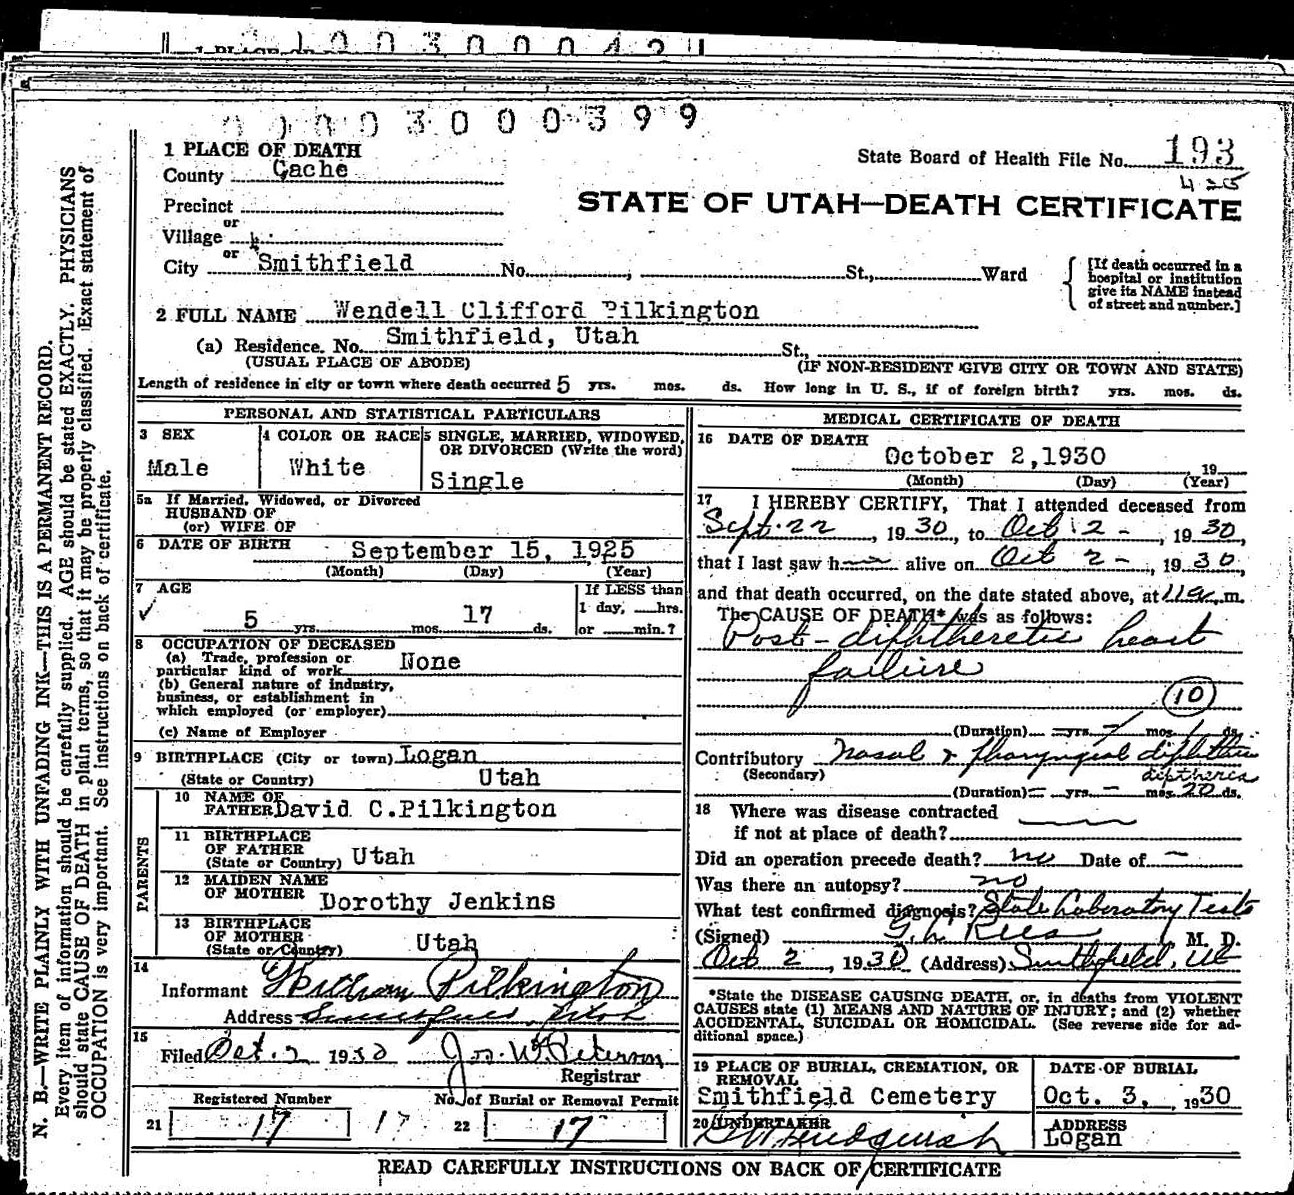 00003000399
1 PLACE OF DEATH
County Cache
State Board of Health File No. 193
425
Precinct
or
Village
or
City Smithfield No. , St., Ward
STATE OF UTAH—DEATH CERTIFICATE
[If death occurred in a
hospital or institution
give its NAME instead
of street and number.]
2 FULL NAME Wendell Clifford Pilkington
(a) Residence. No. Smithfield, Utah St.,
(USUAL PLACE OF ABODE) (IF NON-RESIDENT GIVE CITY OR TOWN AND STATE)
Length of residence in city or town where death occurred 5 yrs. mos. ds. How long in U. S., if of foreign birth? yrs. mos. ds.
PERSONAL AND STATISTICAL PARTICULARS
3 SEX
Male
4 COLOR OR RACE
White
5 SINGLE, MARRIED, WIDOWED,
OR DIVORCED (Write the word)
Single
5a If Married, Widowed, or Divorced
HUSBAND OF
(or) WIFE OF
6 DATE OF BIRTH September 15, 1925
(Month) (Day) (Year)
7 AGE
5 yrs. mos. 17 ds.
If LESS than
1 day, hrs.
or min.?
8 OCCUPATION OF DECEASED
(a) Trade, profession or
particular kind of work None
(b) General nature of industry,
business, or establishment in
which employed (or employer)
(c) Name of Employer
9 BIRTHPLACE (City or town) Logan
(State or Country) Utah
PARENTS
10 NAME OF
FATHER David C.Pilkington
11 BIRTHPLACE
OF FATHER
(State or Country) Utah
12 MAIDEN NAME
OF MOTHER Dorothy Jenkins
13 BIRTHPLACE
OF MOTHER
(State or Country) Utah
14
Informant Pilkington
Address Smithfield, Utah
15
Filed Oct. 2 1930 Jos. W. Peterson
Registrar
Registered Number No. of Burial or Removal Permit
21 17 17 22 17
MEDICAL CERTIFICATE OF DEATH
16 DATE OF DEATH
October 2,1930 19
(Month) (Day) (Year)
17 I HEREBY CERTIFY, That I attended deceased from
Sept. 22, 1930, to Oct 2 -, 1930,
that I last saw h alive on Oct 2 -, 1930,
and that death occurred, on the date stated above, at 11 a. m.
The CAUSE OF DEATH* was as follows:
Post-diphtheretic heart
failure
10
(Duration) yrs. mos. 1 ds.
Contributory Nasal & Pharyngial diphtheria
(Secondary) diptheria
(Duration) yrs. mos. 20 ds.
18 Where was disease contracted
if not at place of death?
Did an operation precede death? no Date of -
Was there an autopsy? no
What test confirmed diagnosis? State Laboratory Tests
(Signed) G. L. Rees M. D.
Oct 2, 1930 (Address) Smithfield, Ut
*State the DISEASE CAUSING DEATH, or, in deaths from VIOLENT
CAUSES state (1) MEANS AND NATURE OF INJURY; and (2) whether
ACCIDENTAL, SUICIDAL OR HOMICIDAL. (See reverse side for ad-
ditional space.)
19 PLACE OF BURIAL, CREMATION, OR
REMOVAL
Smithfield Cemetery
DATE OF BURIAL
Oct. 3, 1930
20 UNDERTAKER
ADDRESS
Logan
READ CAREFULLY INSTRUCTIONS ON BACK OF CERTIFICATE
N. B.—WRITE PLAINLY WITH UNFADING INK—THIS IS A PERMANENT RECORD.
Every item of information should be carefully supplied. AGE should be stated EXACTLY. PHYSICIANS
should state CAUSE OF DEATH in plain terms, so that it may be properly classified. Exact statement of
OCCUPATION is very important. See instructions on back of certificate.